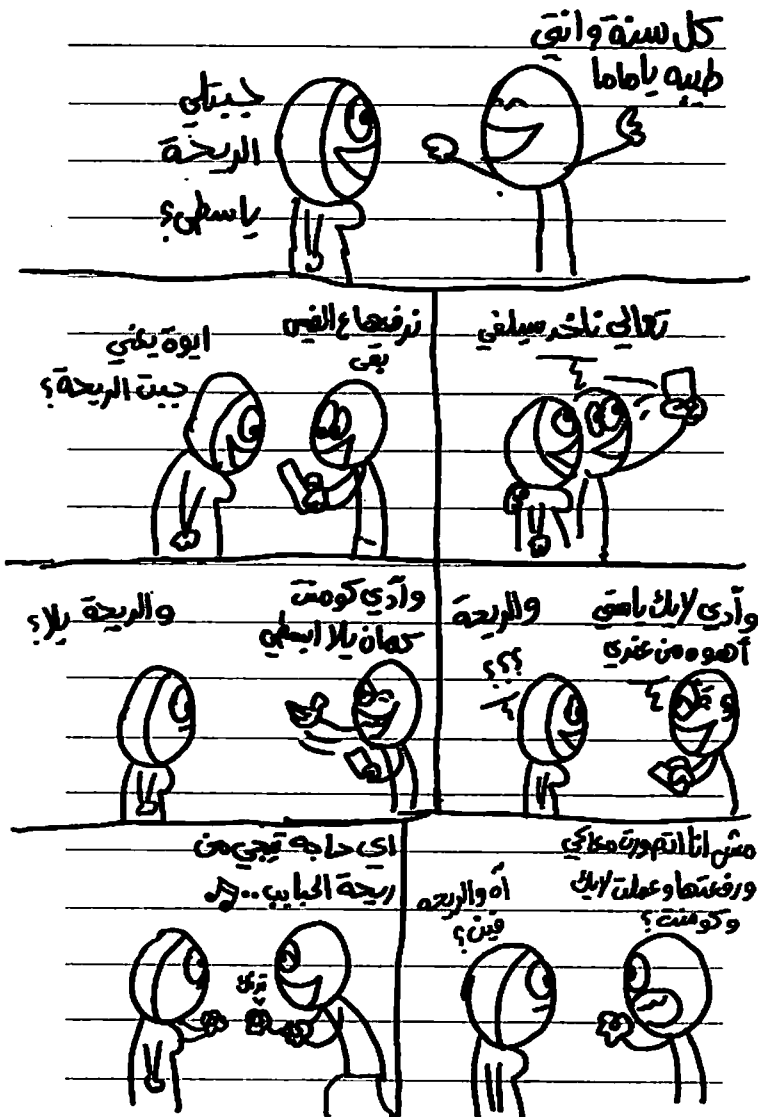 كل سنة وانتي
طيبه ياماما
جيبتلي
الريحة
ياسطى؟
تعالي ناخد سيلفي
نرفعها ع الفيس
بقى
ايوة يعني
جبت الريحة؟
وآدي لايك يا ستي
أهوه من عندي
والريحة
؟؟؟
وآدي كومنت
كمان يلا ابسطي
والريحة يلا؟
مش انا اتصورت معاكي
ورفعتها وعملت لايك
وكومنت؟
آه والريحه
فين؟
اي حاجه تيجي من
ريحة الحبايب..